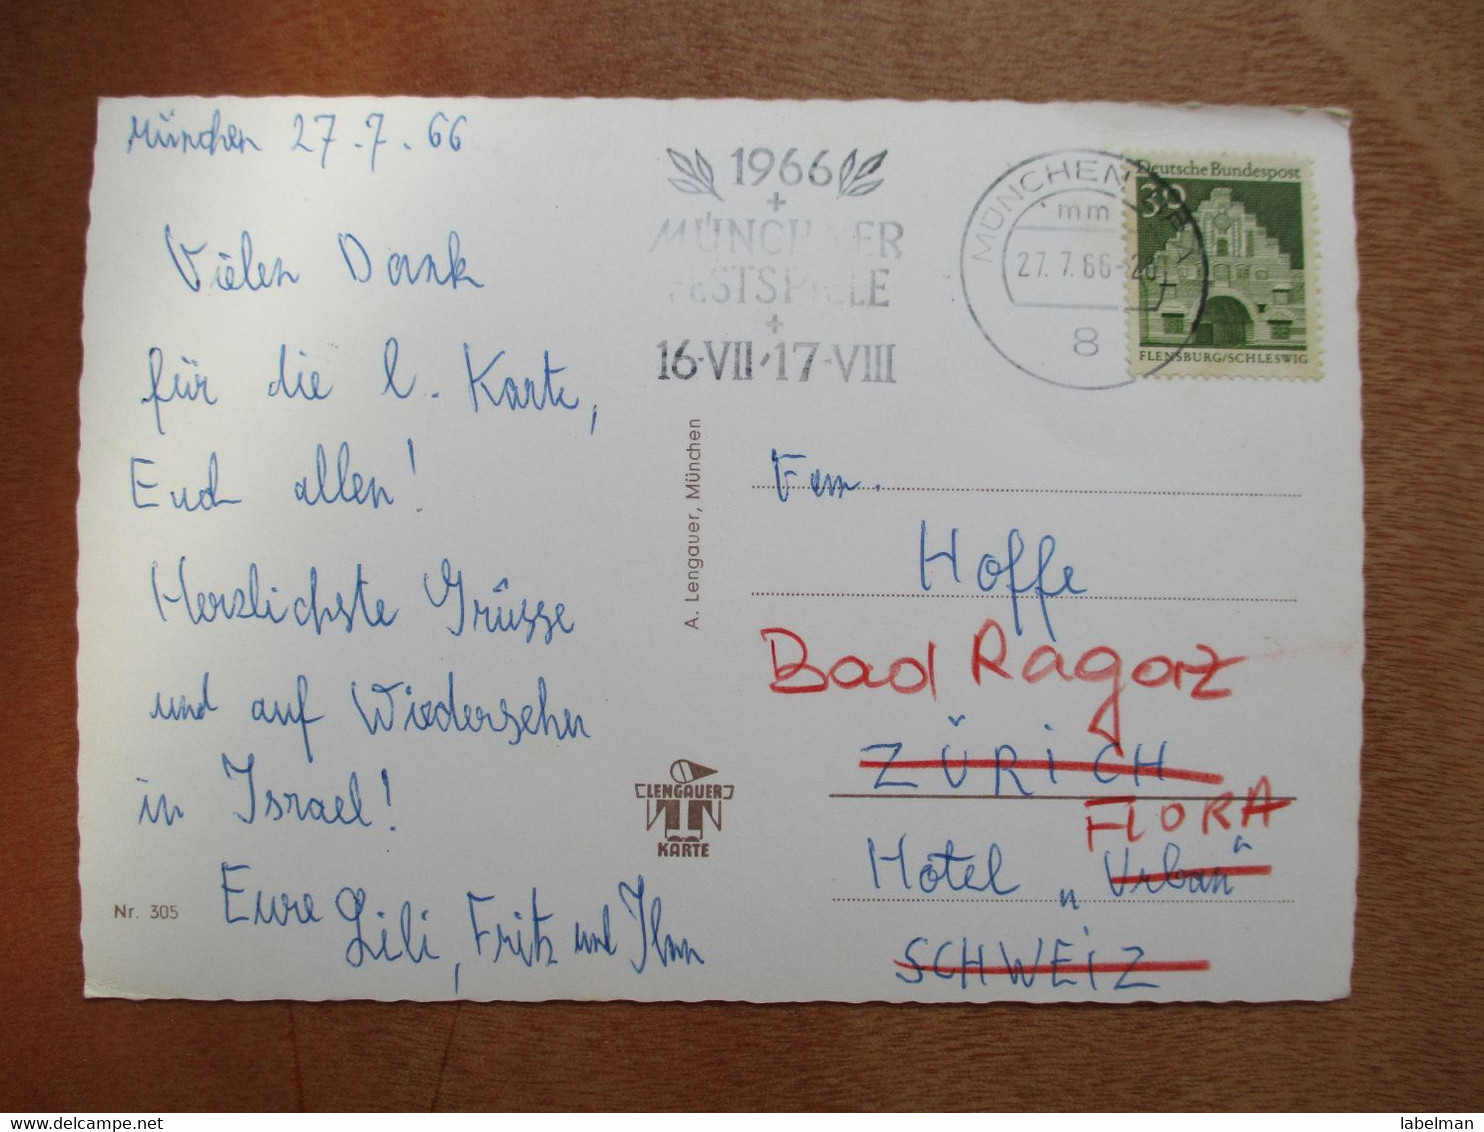 München 27.7.66
Vielen Dank
für die l. Karte,
Euch allen!
Herzlichste Grüsse
und auf Wiedersehn
in Israel!
Eure Lili, Fritz und Ilan
Nr. 305
A. Lengauer, München
LENGAUER
KARTE
1966
+
MÜNCHNER
FESTSPIELE
+
16·VII·17·VIII
MÜNCHEN
mm
27.7.66-20
8
Deutsche Bundespost
30
FLENSBURG/SCHLESWIG
Fam.
Hoffe
Bad Ragaz
ZÜRICH
FLORA
Hotel „Urban“
SCHWEIZ
www.delcampe.net
labelman